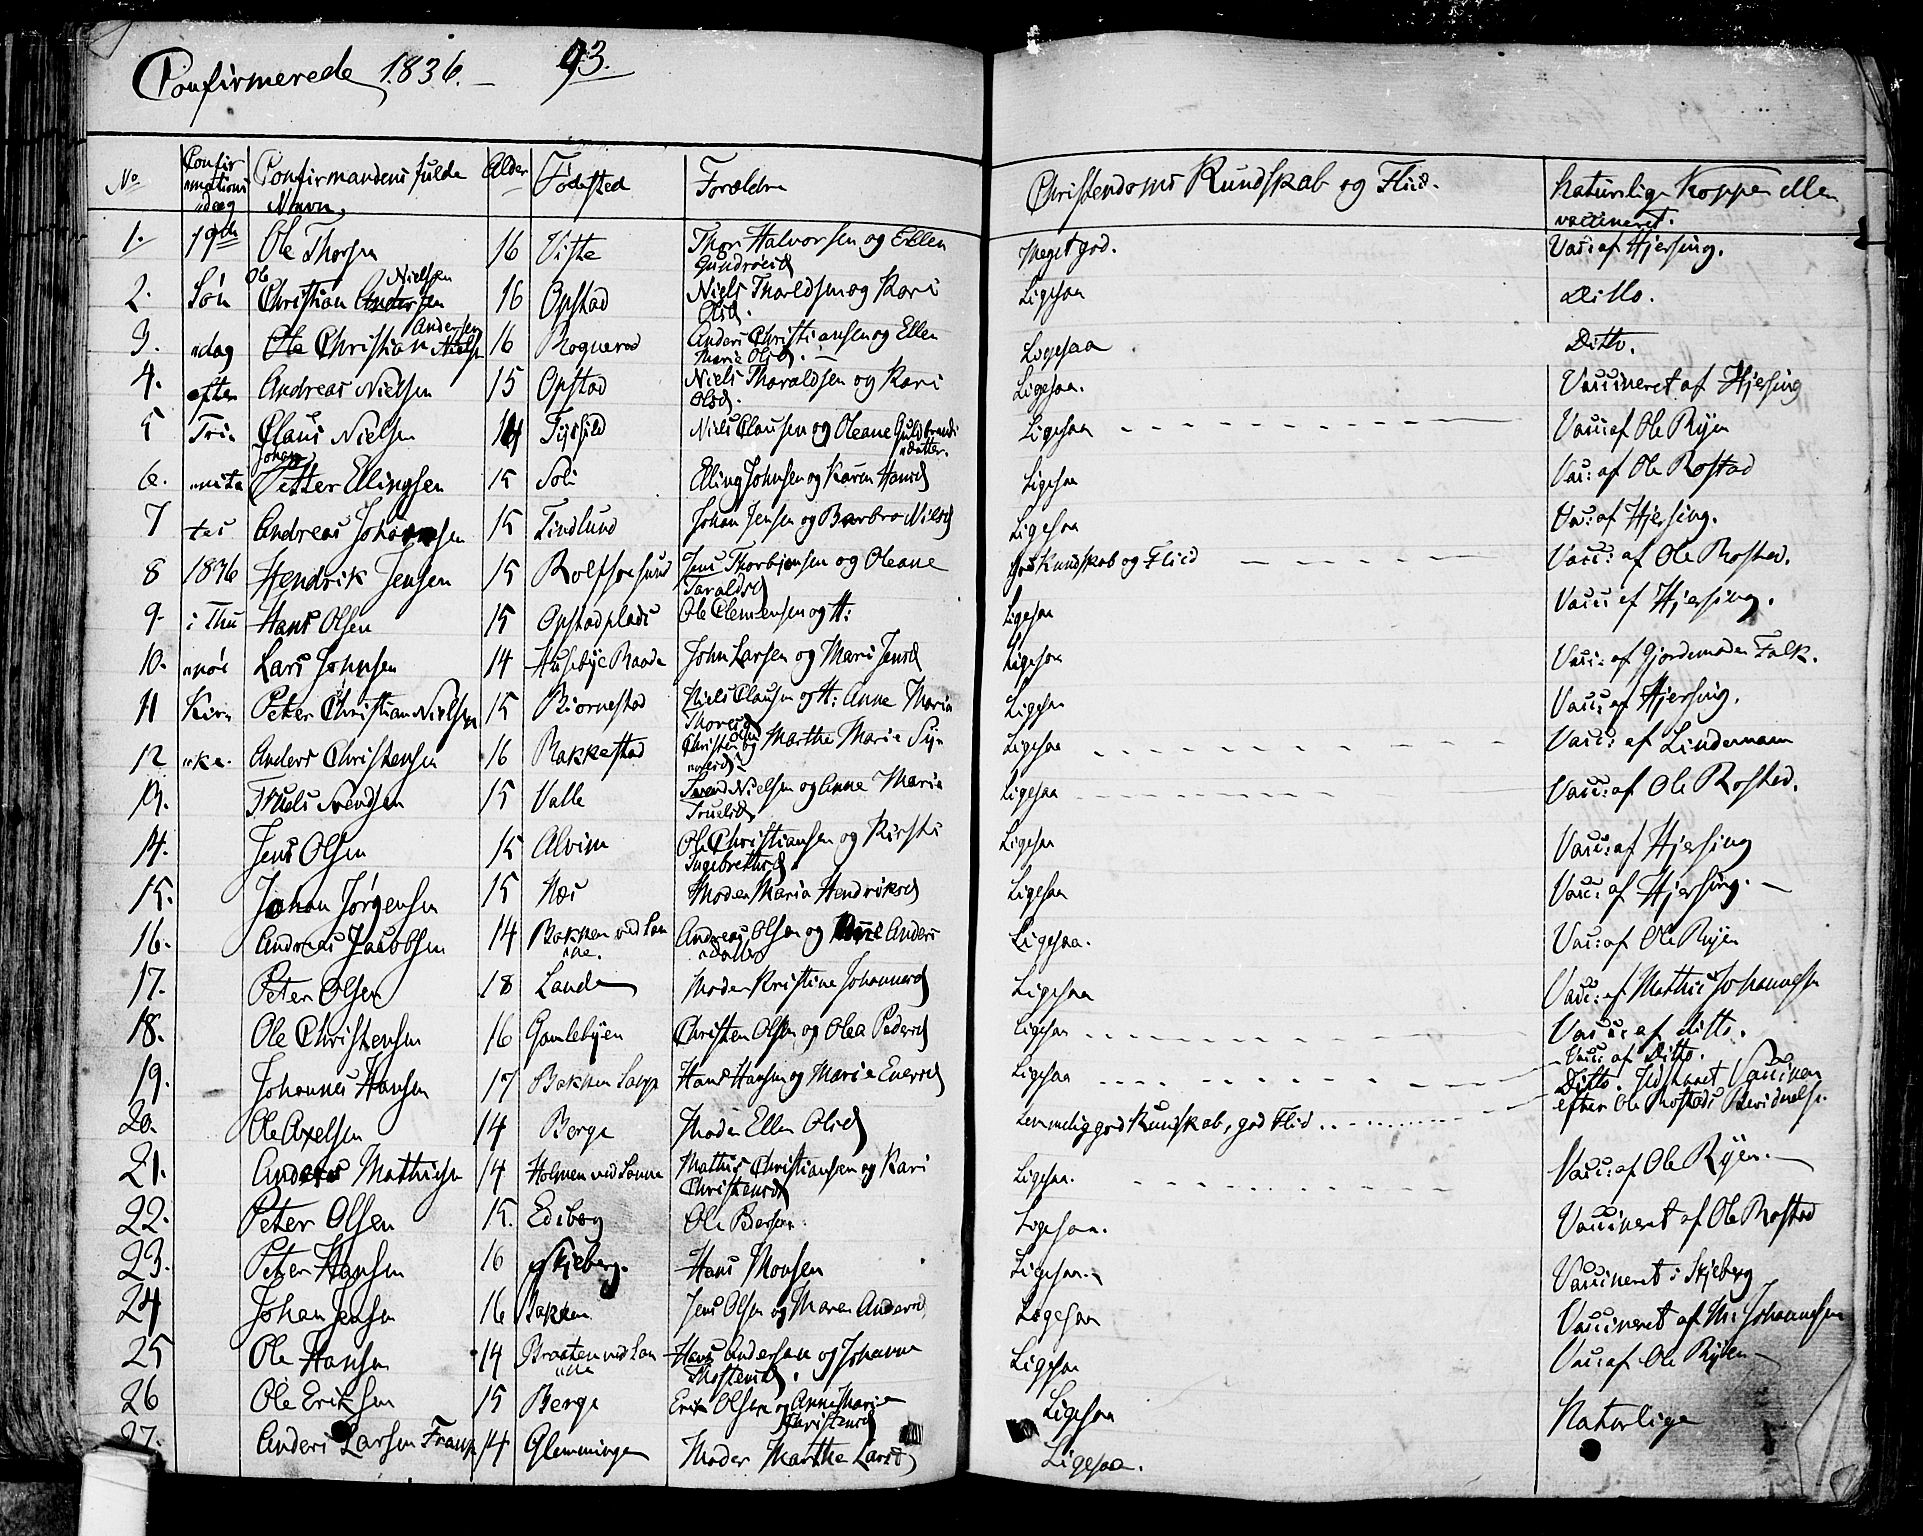 Confirmerede 1836. — 93.
No Confirmations dag Confirmandens fulde Navn, Alder Fødested Forældre Christendoms Kundskab og Fliid. Naturlige Kopper eller vaccineret.
1. 19de Ole Thorsen 16 Viste Thor Halvorsen og Ellen Gundrøesd Meget god. Vac: af Hjersing.
2. Søn Ole Christian Andersen Nielsen 16 Opstad Niels Tharldsen og Kari Olsd. Ligesaa Ditto.
3. dag Ole Christian Niels Andersen 16 Anders Christiansen og Ellen Marie Olsd. — Ligesaa Ditto.
4. efter Andreas Nielsen 15 Opstad Niels Tharaldsen og Kari Olsd. Ligesaa. Vaccineret af Hjersing
5 Tri Claus Nielsen 14 Niels Clausen og Oleane Guldbrands datter. Ligesaa Vacc: af Ole Ryen
6. nita Johan Petter Ellingsen 15 Soli Elling Johnsen og Karen Hansd Ligesaa Vac: af Ole Rostad
7 tes Andreas Johannesen 15 Tindlund Johan Jensen og Barbro Nielsd Ligesaa Vac: af Hjersing.
8 1836 Hendrik Jensen 15 Rolfsøesund Jens Thorbjensen og Oleane Taraldsd god Kundskab og Fliid Vacc: af Ole Rosted.
9. i Thu Hans Olsen 15 Opstadplads Ole Clemensen og H: Ligesaa Vacc af Hjersing.
10. nøe Lars Johnsen 14 Husebye Raade John Larsen og Mari Jensd Ligesaa Vacc: af Gjordemoder Falk.
11 Kir Peter Christian Nielsen 15 Biornestad Niels Clausen og H: Anne Maria Thoresd Ligesaa Vacc: af Hjersing.
12 ke. Anders Christensen 16 Rakkestad Christen og Marthe Marie Ligesaa Vacc: af Lindemann
13. Truels Svendsen 15 Valle Svend Nielsen og Anne Maria Truelsd Ligesaa Vacc: af Ole Rosted.
14. Jens Olsen 15 Alvim Ole Christiansen og Kirsti Ingebretsd Ligesaa Vacc: af Hjersing
15. Johan Jørgensen 15 Næs Moder Maria Hendriksd Ligesaa Vacc: af Hjersing. —
16. Andreas Jacobsen 14 Bakken ved Lanne. Andreas Olsen og Anders datter Ligesaa. Vac: af Ole Ryen
17. Peter Olsen 18 Lande Moder Kristine Johannesd Ligesaa Vacc: af Mathis Johannesen
18. Ole Christensen 16 Gamlebyen Christen Olsen og Olea Pedersd Ligesaa Vacc: af ditto.
19. Johannes Hansen 17 Bakken Hans Hansen og Marie Evensd Ligesaa Vacc: af Ditto.
20. Ole Axelsen 14 Berge Moder Ellen Olsd Temmelig god Kundskab, god Fliid Ditto. Vaccinen efter Ole Rosteds
21. Anders Mathisen 14 Holmen ved Lanne Mathis Christiansen og Kari Christensd Ligesaa. Vacc: af Ole Ryen. —
22. Peter Olsen 15. Ole Ligesaa. Vaccineret af Ole Rostad
23. Peter Hansen 16 Skjeberg. Hans Monsen Ligesaa. Vaccineret i Skjeberg
24 Johan Jensen 16 Bakken Jens Olsen og Maren Andersd. Ligesaa Vaccineret af Ms: Johannesen
25 Ole Hansen 14 Braaten ved Lanne Hans Andersen og Johanne Ligesaa Vac: af Ole Ryen —
26 Ole Eriksen 15 Berge Erik Olsen og Anne Marie Christensd Ligesaa Naturlige
27. Anders Larsen 14 Glemminge Moder Marthe Larsd Ligesaa.